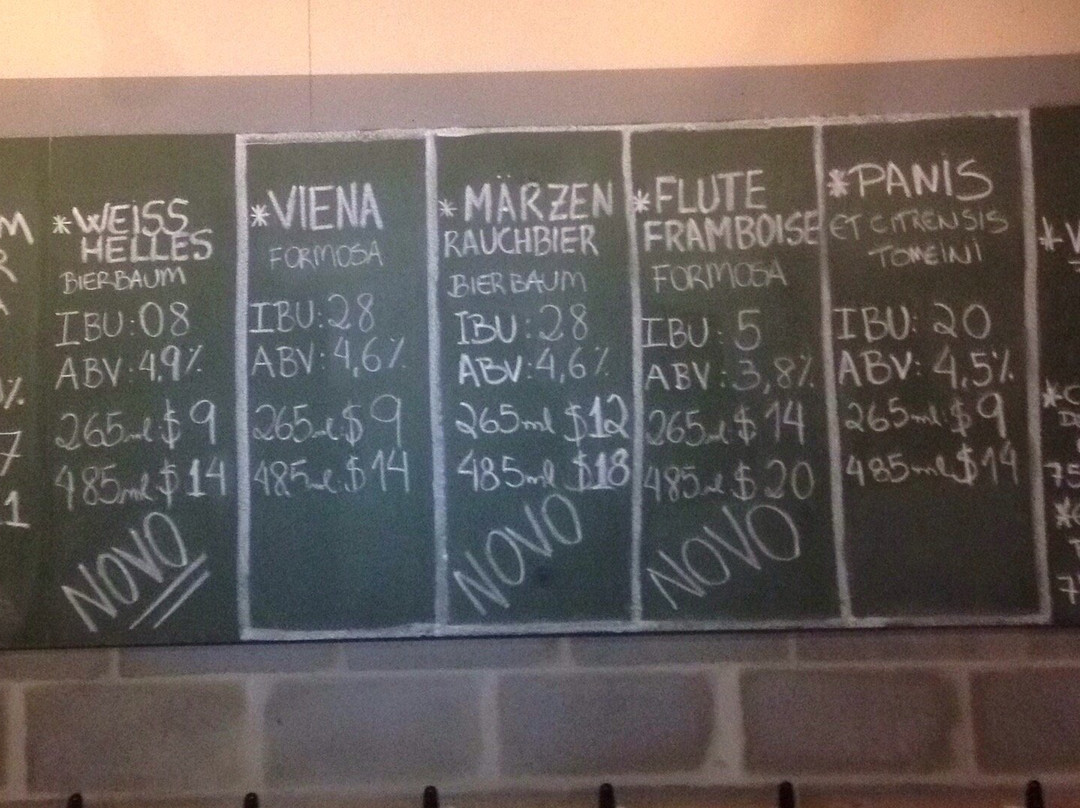 M
R
%
7
1
*WEISS
HELLES
BIERBAUM
IBU:08
ABV:4,9%
265ml $9
485ml $14
NOVO
*VIENA
FORMOSA
IBU:28
ABV:4,6%
265ml $9
485ml $14
*MÄRZEN
RAUCHBIER
BIERBAUM
IBU:28
ABV:4,6%
265ml $12
485ml $18
NOVO
*FLUTE
FRAMBOISE
FORMOSA
IBU:5
ABV:3,8%
265ml $14
485ml $20
NOVO
*PANIS
ET CITRENSIS
TOMEINI
IBU:20
ABV:4,5%
265ml $9
485ml $14
*V
*C
75
*
7